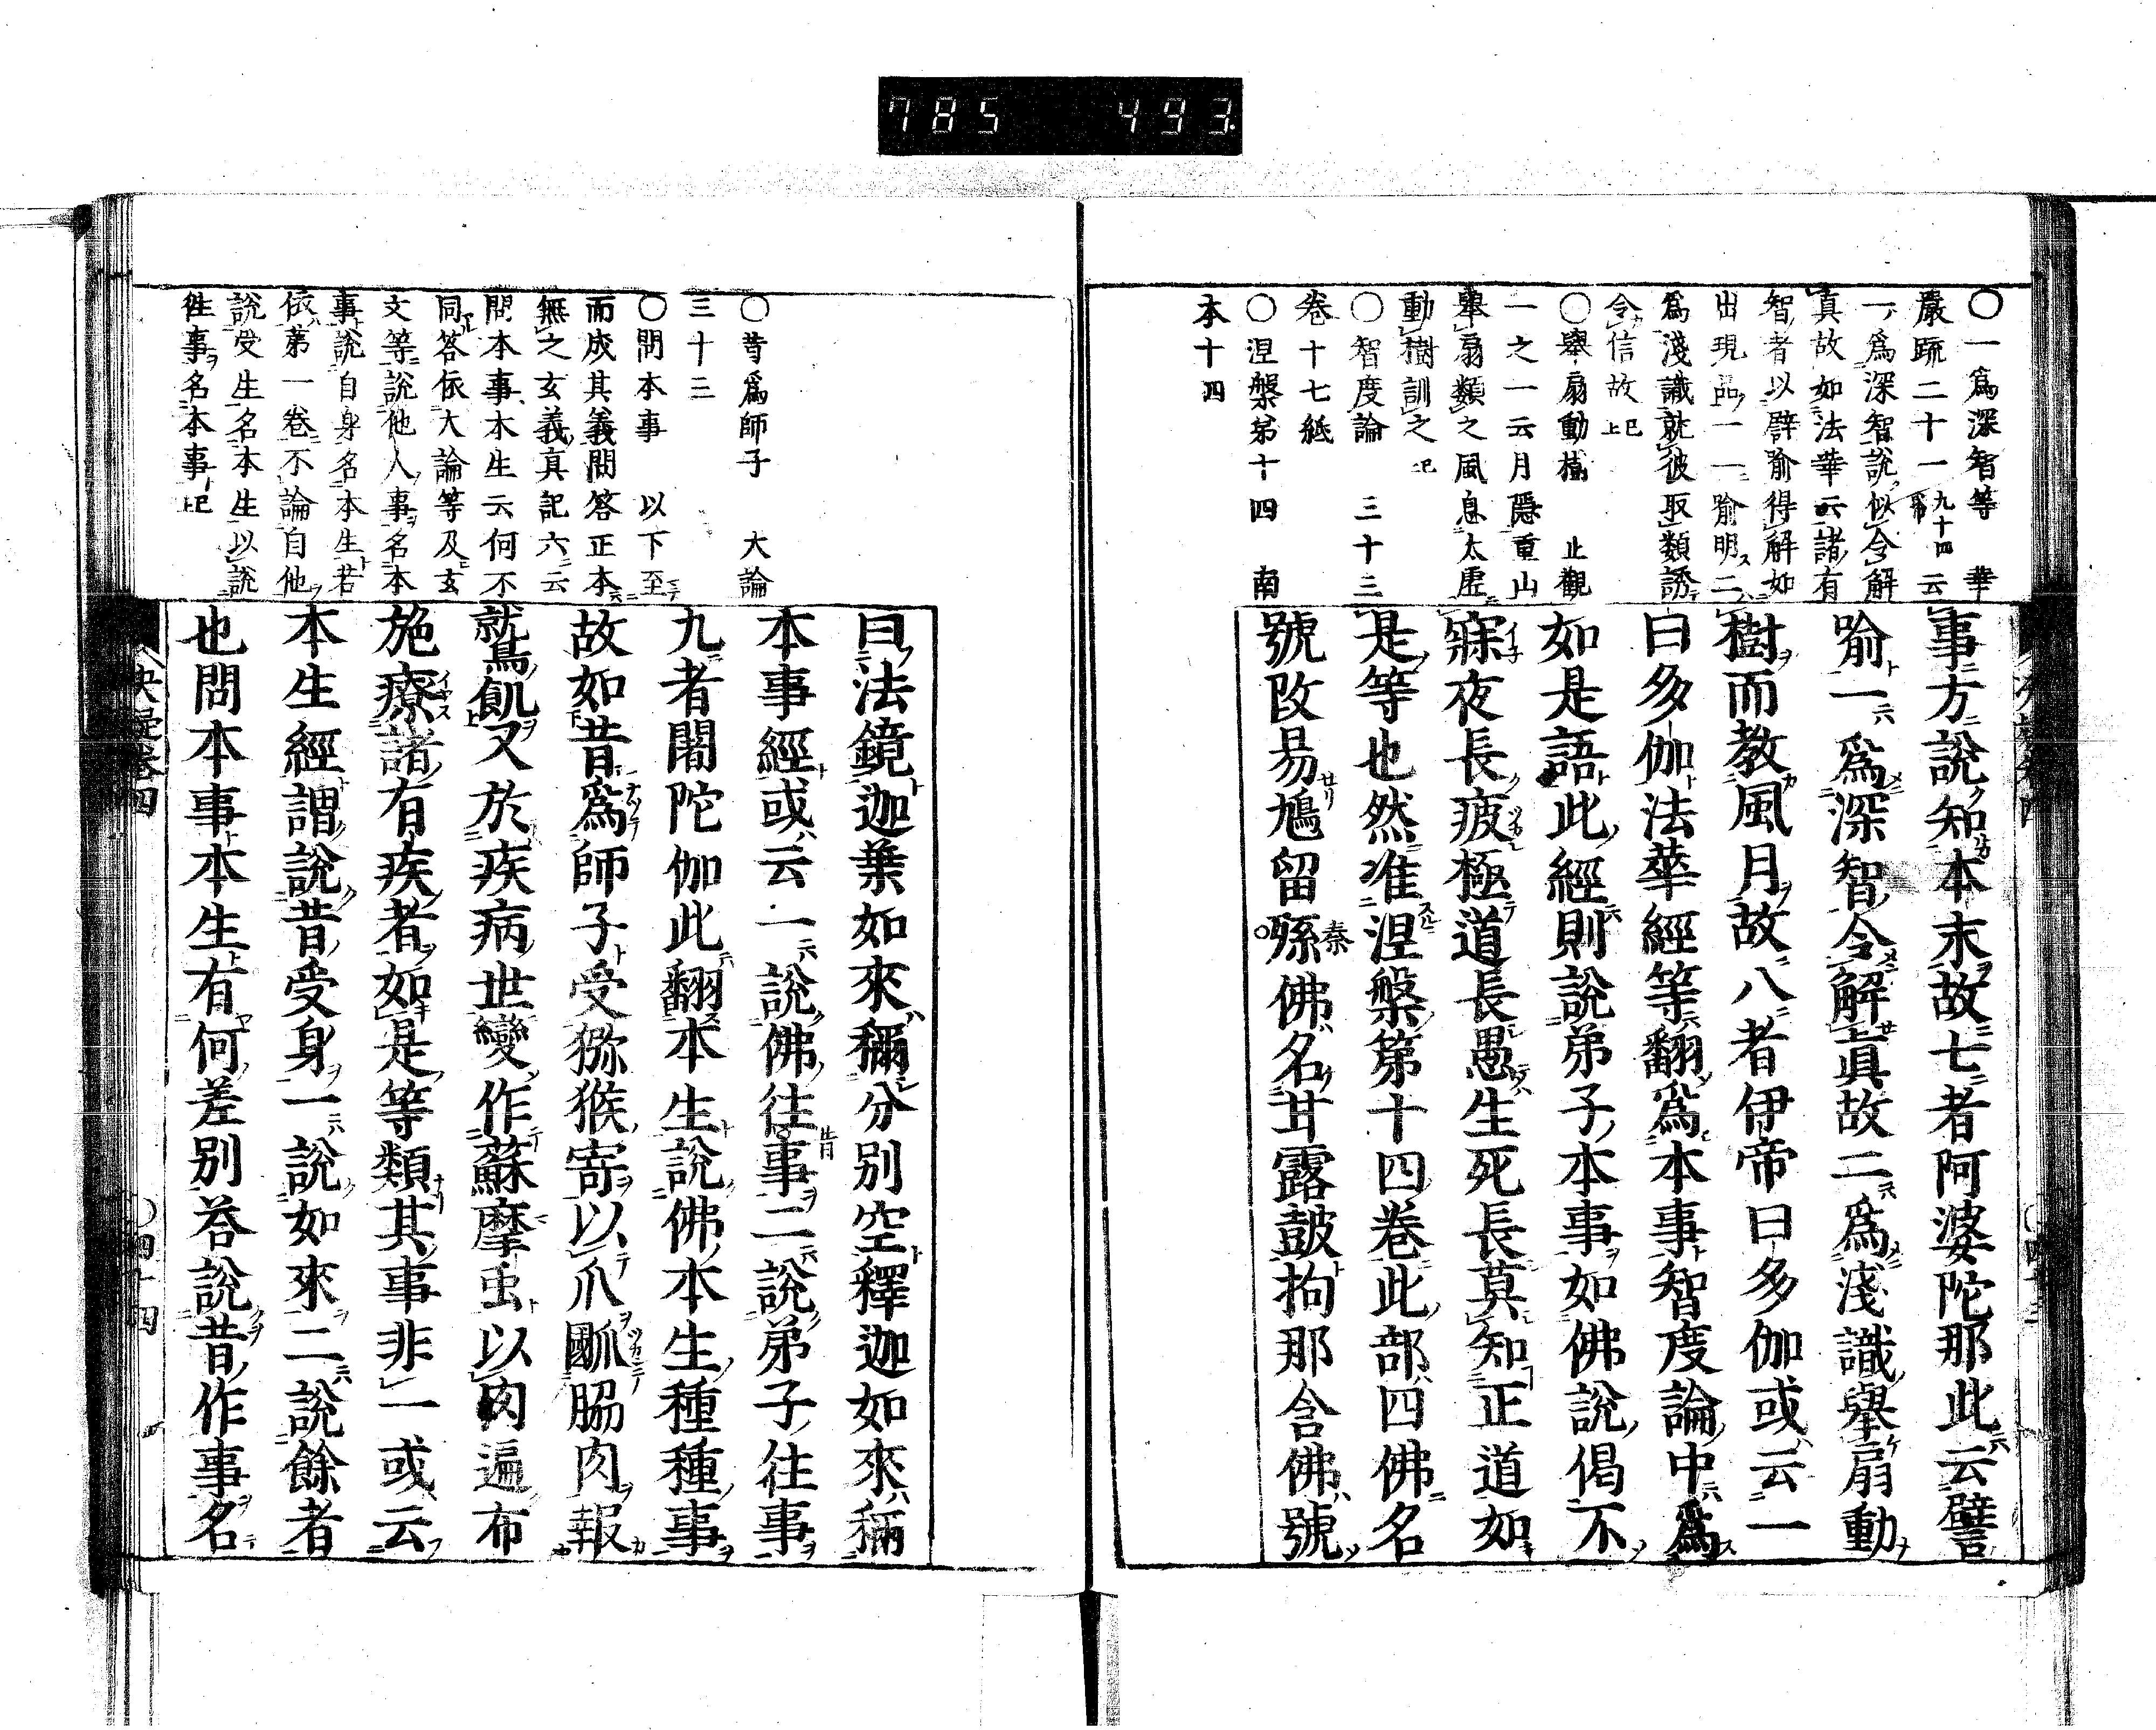 785 493
〇一爲深智等 華
嚴疏二十一九十四云
一爲深智說似令解
真故如法華云諸有
智者以譬喻得解如
出現品一一喻明二
爲淺識就彼取類誘
令信故已上
〇舉扇動樹 止觀
一之一云月隱重山
舉扇類之風息太虛
動樹訓之已
〇智度論 三十三
卷十七紙
〇涅槃第十四 南
本十四
事方說知本末故七者阿婆陀那此云譬
喻一爲深智令解眞故二爲淺識舉扇動
樹而教風月故八者伊帝曰多伽或云一
曰多伽法華經等翻爲本事智度論中爲
如是語此經則說弟子本事如佛說偈不
寐夜長疲極道長愚生死長莫知正道如
是等也然准涅槃第十四卷此部四佛名
號改易鳩留秦佛名甘露鼓拘那含佛號
曰法鏡迦葉如來稱分別空釋迦如來稱
本事經或云一說佛往事二說弟子往事
九者闍陀伽此翻本生說佛本生種種事
故如昔爲師子受獼猴寄以爪𠛎脇肉報
就鳥飢又於疾病世變作蘇摩虫以肉遍布
施療諸有疾者如是等類其事非一或云
本生經謂說昔受身一說如來二說餘者
也問本事本生有何差別荅說昔作事名
〇昔爲師子 大論
三十三
〇問本事 以下至
而成其義問答正本
無之玄義真記六云
問本事本生云何不
同答依大論等及玄
文等說他人事名本
事說自身名本生若
依第一卷不論自他
說受生名本生以說
往事名本事已上